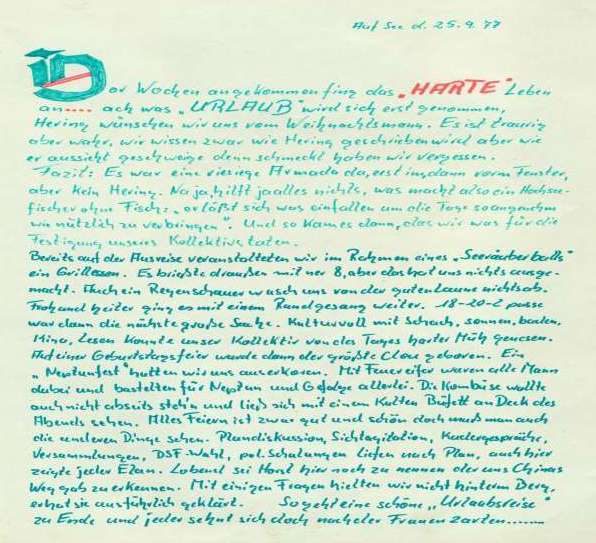 Auf See d. 25.9.77
Vor Wochen angekommen fing das „HARTE" Leben
an.... ach was „URLAUB" wird sich erst genommen,
Hering wünschen wir uns vom Weihnachtsmann. Es ist traurig
aber wahr, wir wissen zwar wie Hering geschrieben wird aber wie
er aussieht geschweige denn schmeckt haben wir vergessen.
Fazit: Es war eine riesige Armada da, erst im, dann vorm Fenster,
aber kein Hering. Na ja, hilft ja alles nichts, was macht also ein Hochsee-
fischer ohne Fisch: „er läßt sich was einfallen um die Tage so angenehm
wie nützlich zu verbringen". Und so kam es dann, das wir was für die
Festigung unseres Kollektivs taten.
Bereits auf der Ausreise veranstalteten wir im Rahmen eines „Seeräuberballs"
ein Grillessen. Es brieste draußen mit ner 8, aber das hat uns nichts ausge-
macht. Auch ein Regenschauer wusch uns von der guten Laune nichts ab.
Froh und heiter ging es mit einem Rundgesang weiter. 18-20-2 passe
war dann die nächste große Sache. Kulturvoll mit Schach, sonnen, baden,
Kino, Lesen konnte unser Kollektiv von des Tages harter Müh genesen.
Auf einer Geburtstagsfeier wurde dann der größte Clou geboren. Ein
„Neptunfest" hatten wir uns auserkoren. Mit Feuereifer waren alle Mann
dabei und bastelten für Neptun und Gefolge allerlei. Die Kombüse wollte
auch nicht abseits steh'n und ließ sich mit einem Kalten Büfett an Deck des
Abends sehen. Alles Feiern ist zwar gut und schön doch muß man auch
die anderen Dinge sehen. Plandiskussion, Sichtagitation, Kadergespräche,
Versammlungen, DSF-Wahl, pol. Schulungen liefen nach Plan, auch hier
zeigte jeder Elan. Lobend sei Horst hier noch zu nennen der uns Chinas
Weg gab zu erkennen. Mit einigen Fragen hielten wir nicht hinterm Berg,
er hat sie ausführlich geklärt. So geht eine schöne „Urlaubsreise"
zu Ende und jeder sehnt sich doch nach der Frauen zarten.......